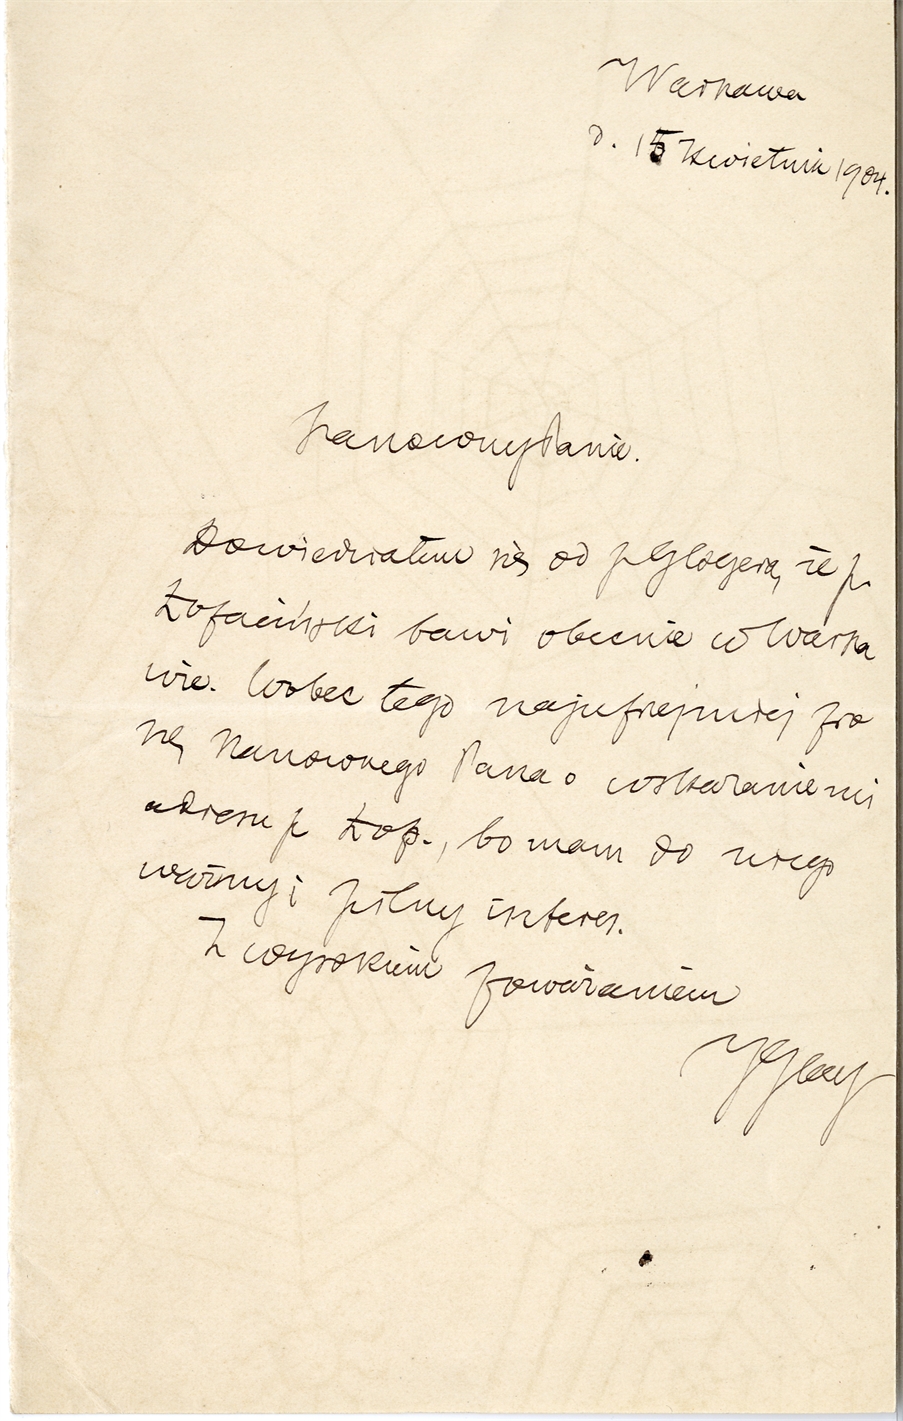 Warszawa
d. 15 Kwietnia 1904.
Szanowny Panie.
Dowiedziałem się od p Glogera, że p.
Łopaciński bawi obecnie w Warsza
wie. Wobec tego najuprzejmiej pro
szę Szanownego Pana o wskazanie mi
adresu p Łop., bo mam do niego
ważny i pilny interes.
Z wysokiem poważaniem